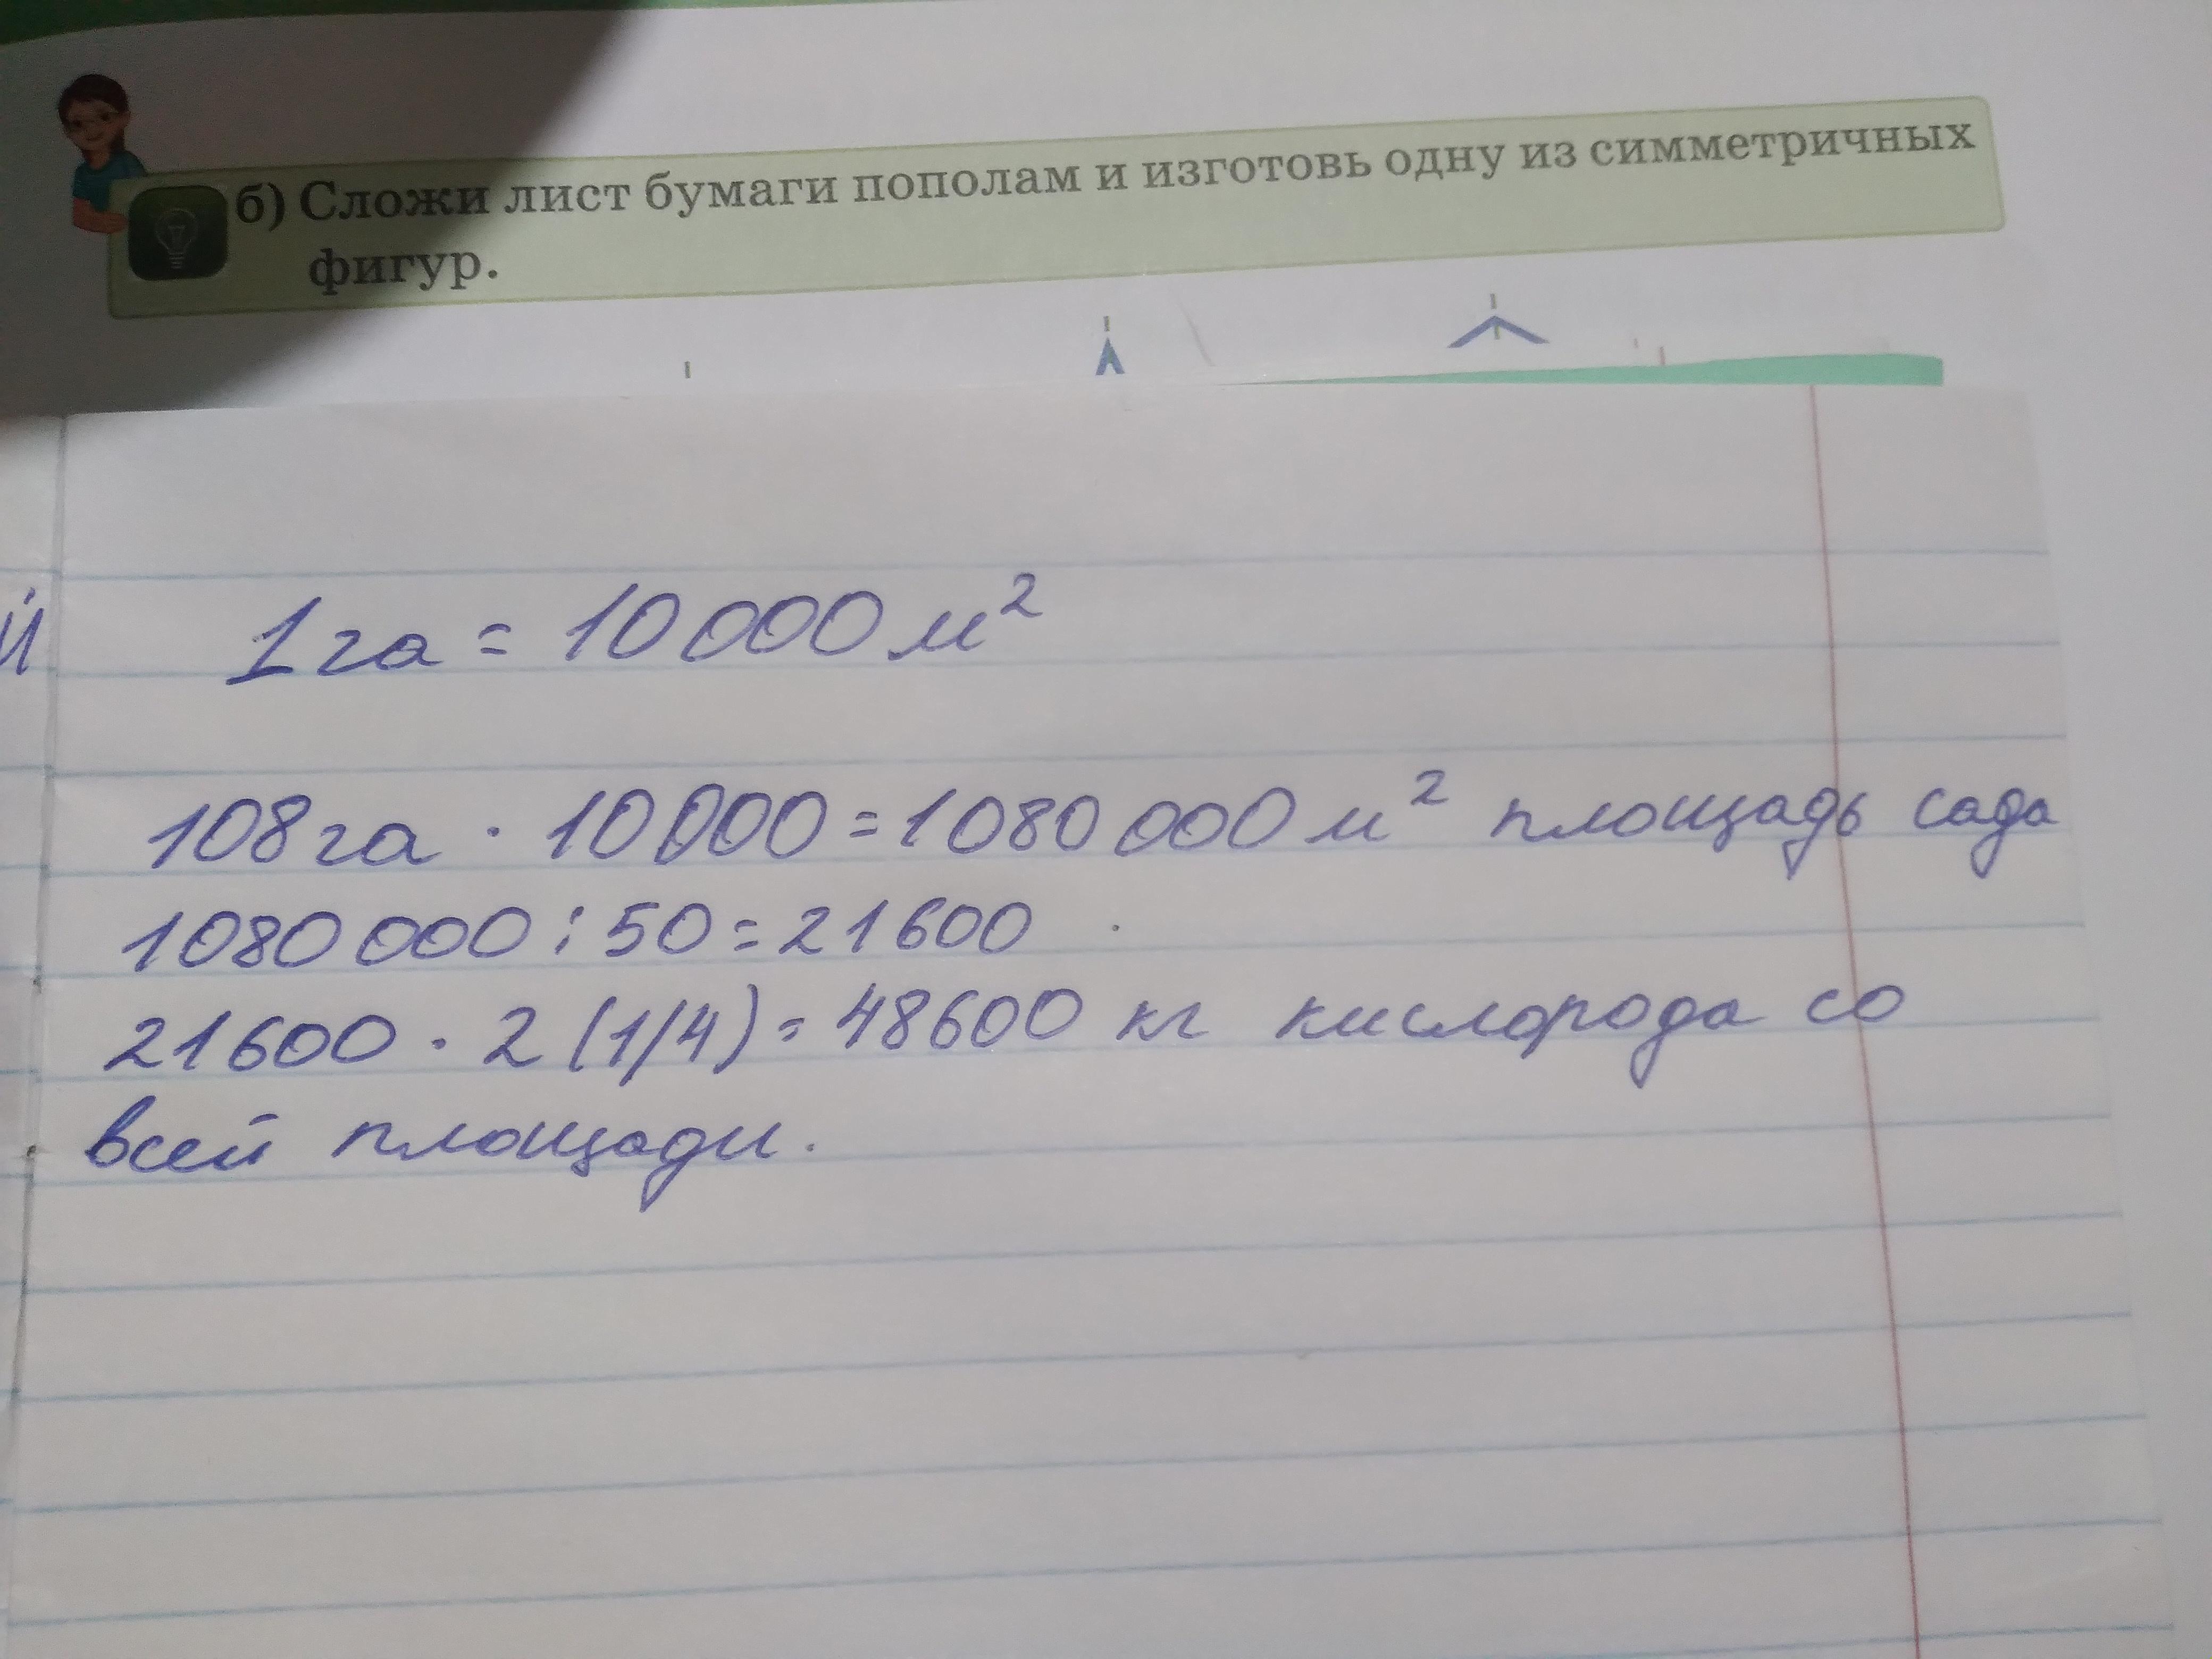 б) Сложи лист бумаги пополам и изготовь одну из симметричных
фигур.
й
1 га = 10 000 м²
108 га · 10 000 = 1 080 000 м² площадь сада
1080 000 : 50 = 21 600
21 600 · 2 (1/4) = 48600 кг кислорода со
всей площади.